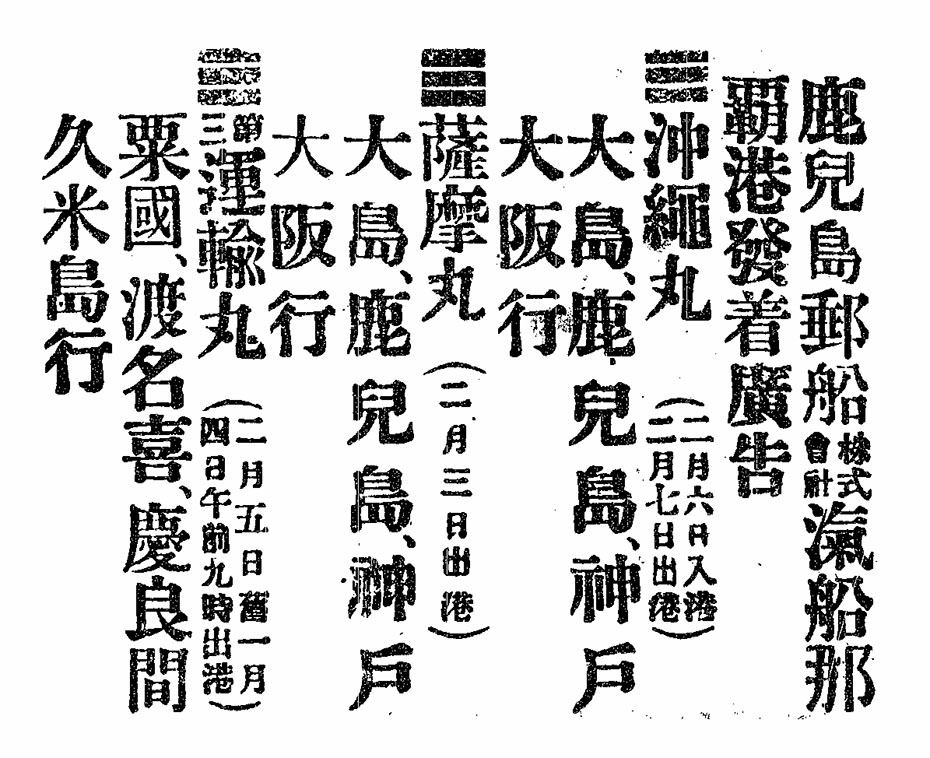 鹿兒島郵船株式會社滊船那
覇港發着廣告
沖繩丸(二月六日入港二月七日出港)
大島、鹿兒島、神戶
大阪行
薩摩丸(二月三日出港)
大島、鹿兒島、神戶
大阪行
第三運輸丸(二月五日舊一月四日午前九時出港)
粟國、渡名喜、慶良間
久米島行